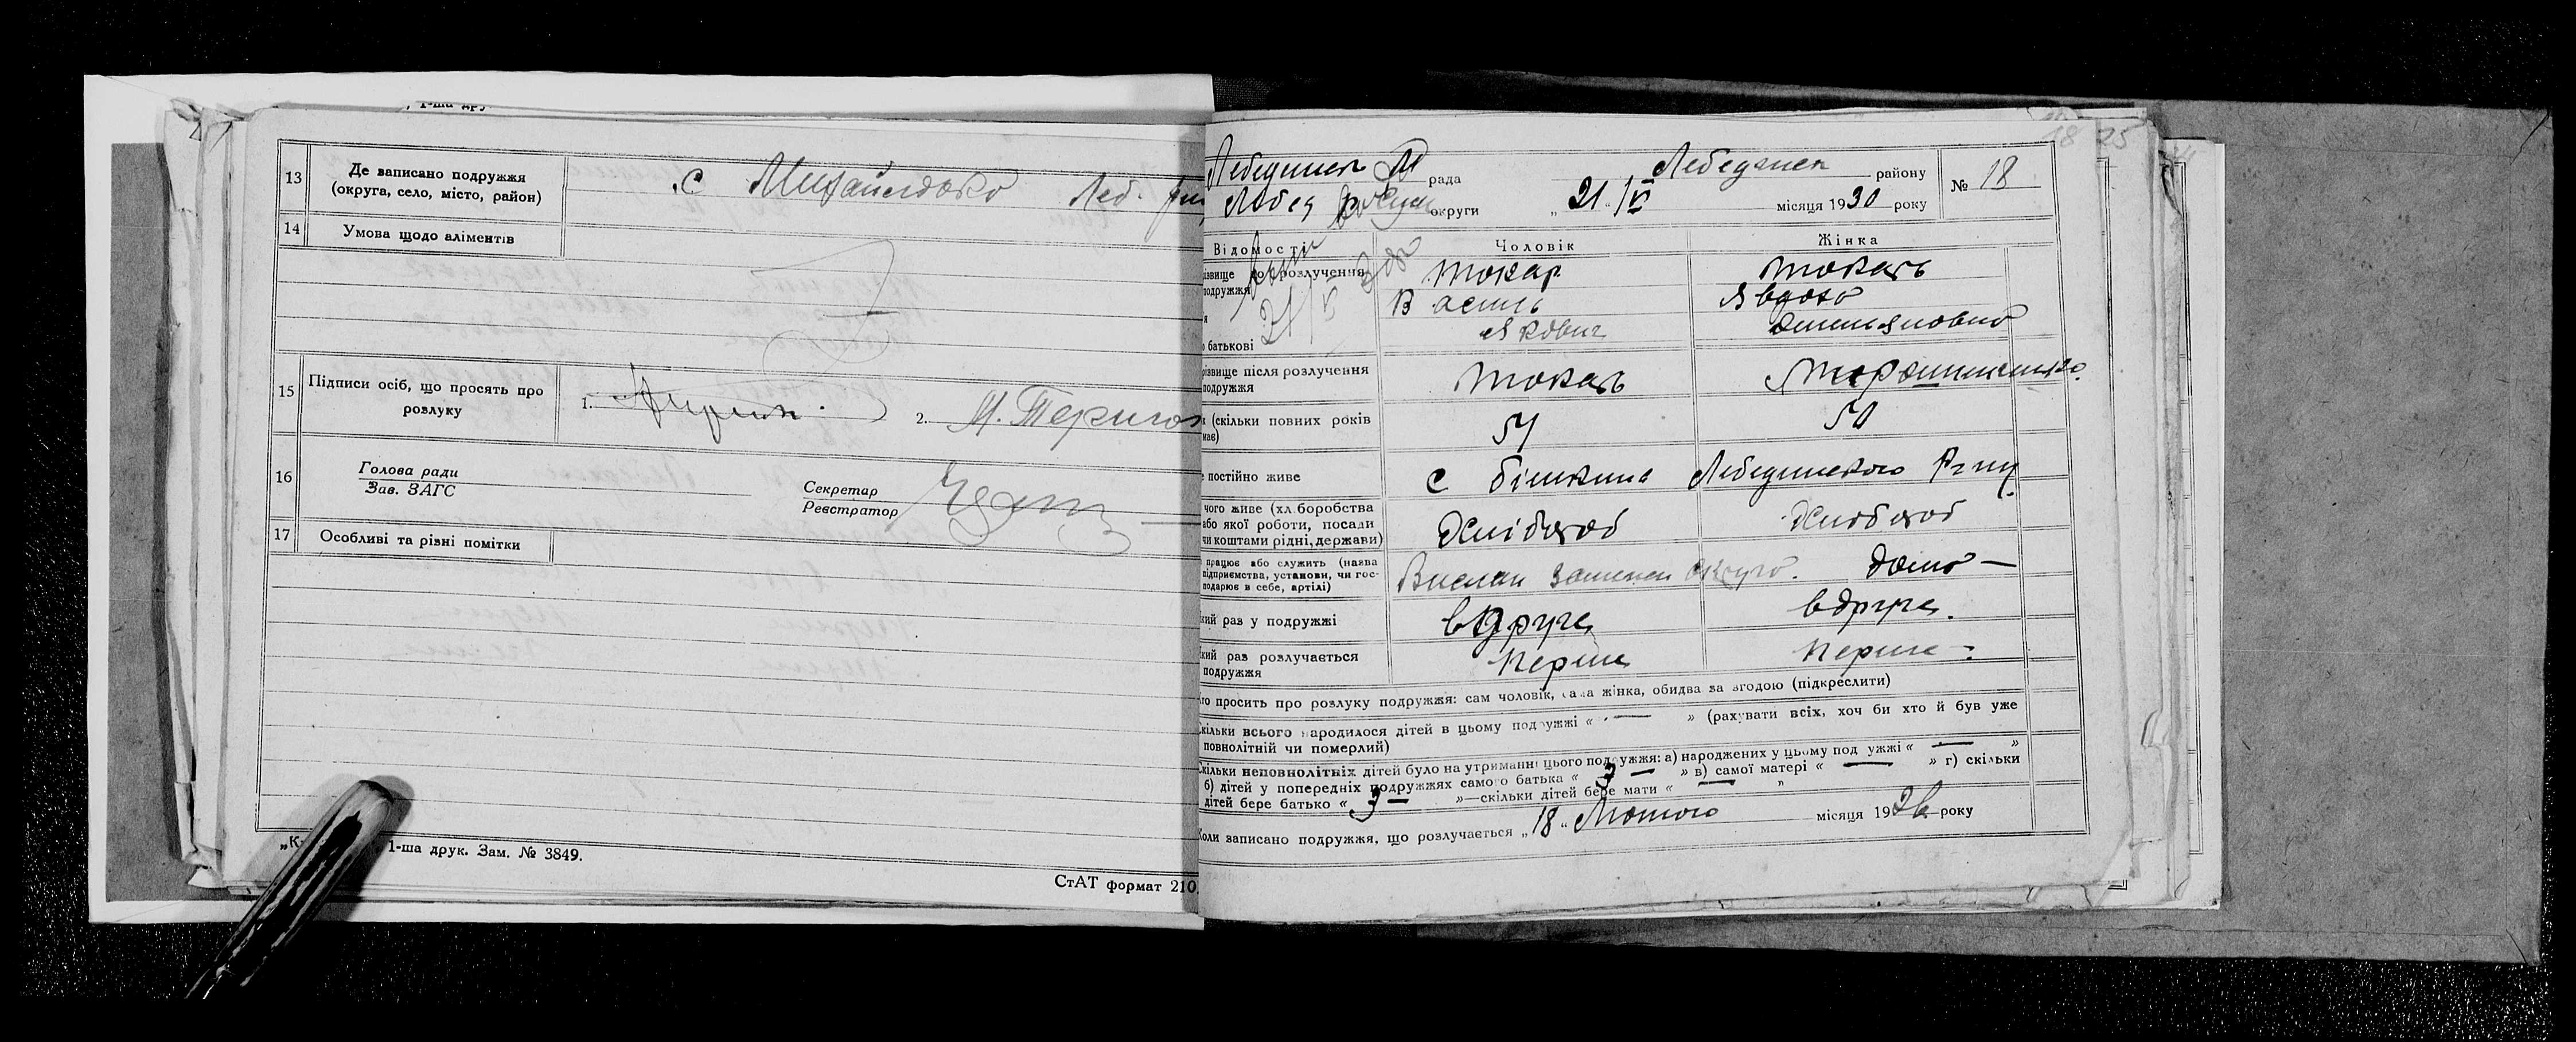 , 1-ша дру
13 Де записано подружжя (округа, село, місто, район) с Михайловка Леб.
14 Умова щодо аліментів
15 Підписи осіб, що просять про розлуку 1. 2. М.
16 Голова ради
Зав. ЗАГС
Секретар
Реєстратор
17 Особливі та різні помітки
1-ша друк. Зам. № 3849.
СтАТ формат 210
18 25
Лебединск рада Лебединск району
округи „21„ / VI місяця 1930 року
№ 18
Відомості Чоловік Жінка
ізвище до розлучення подружжя Токар Токарь
Василь Явдоха
о батькові Якович Омеляновна
різвище після розлучення подружжя Токарь
к (скільки повних років має) 54 50
е постійно живе с Бішкинь Лебединского
чого живе (хл.боробства або якої роботи, посади чи коштами рідні, держави) Хлібороб Хлібороб
працює або служить (назва підприємства, установи, чи господарює в себе, артілі) Вислан дома —
кий раз у подружжі вдруге вдруге.
кий раз розлучається подружжя перше перше -
то просить про розлуку подружжя: сам чоловік, сама жінка, обидва за згодою (підкреслити)
кільки всього народилося дітей в цьому подружжі « — » (рахувати всіх, хоч би хто й був уже
повнолітній чи померлий)
Скільки неповнолітніх дітей було на утриманні цього подружжя: а) народжених у цьому подружжі « — »
б) дітей у попередніх подружжях самого батька « 3 — » в) самої матері « — » г) скільки
дітей бере батько « 3 — »—скільки дітей бере мати « — »
Коли записано подружжя, що розлучається „18„ Лютого місяця 1926 року